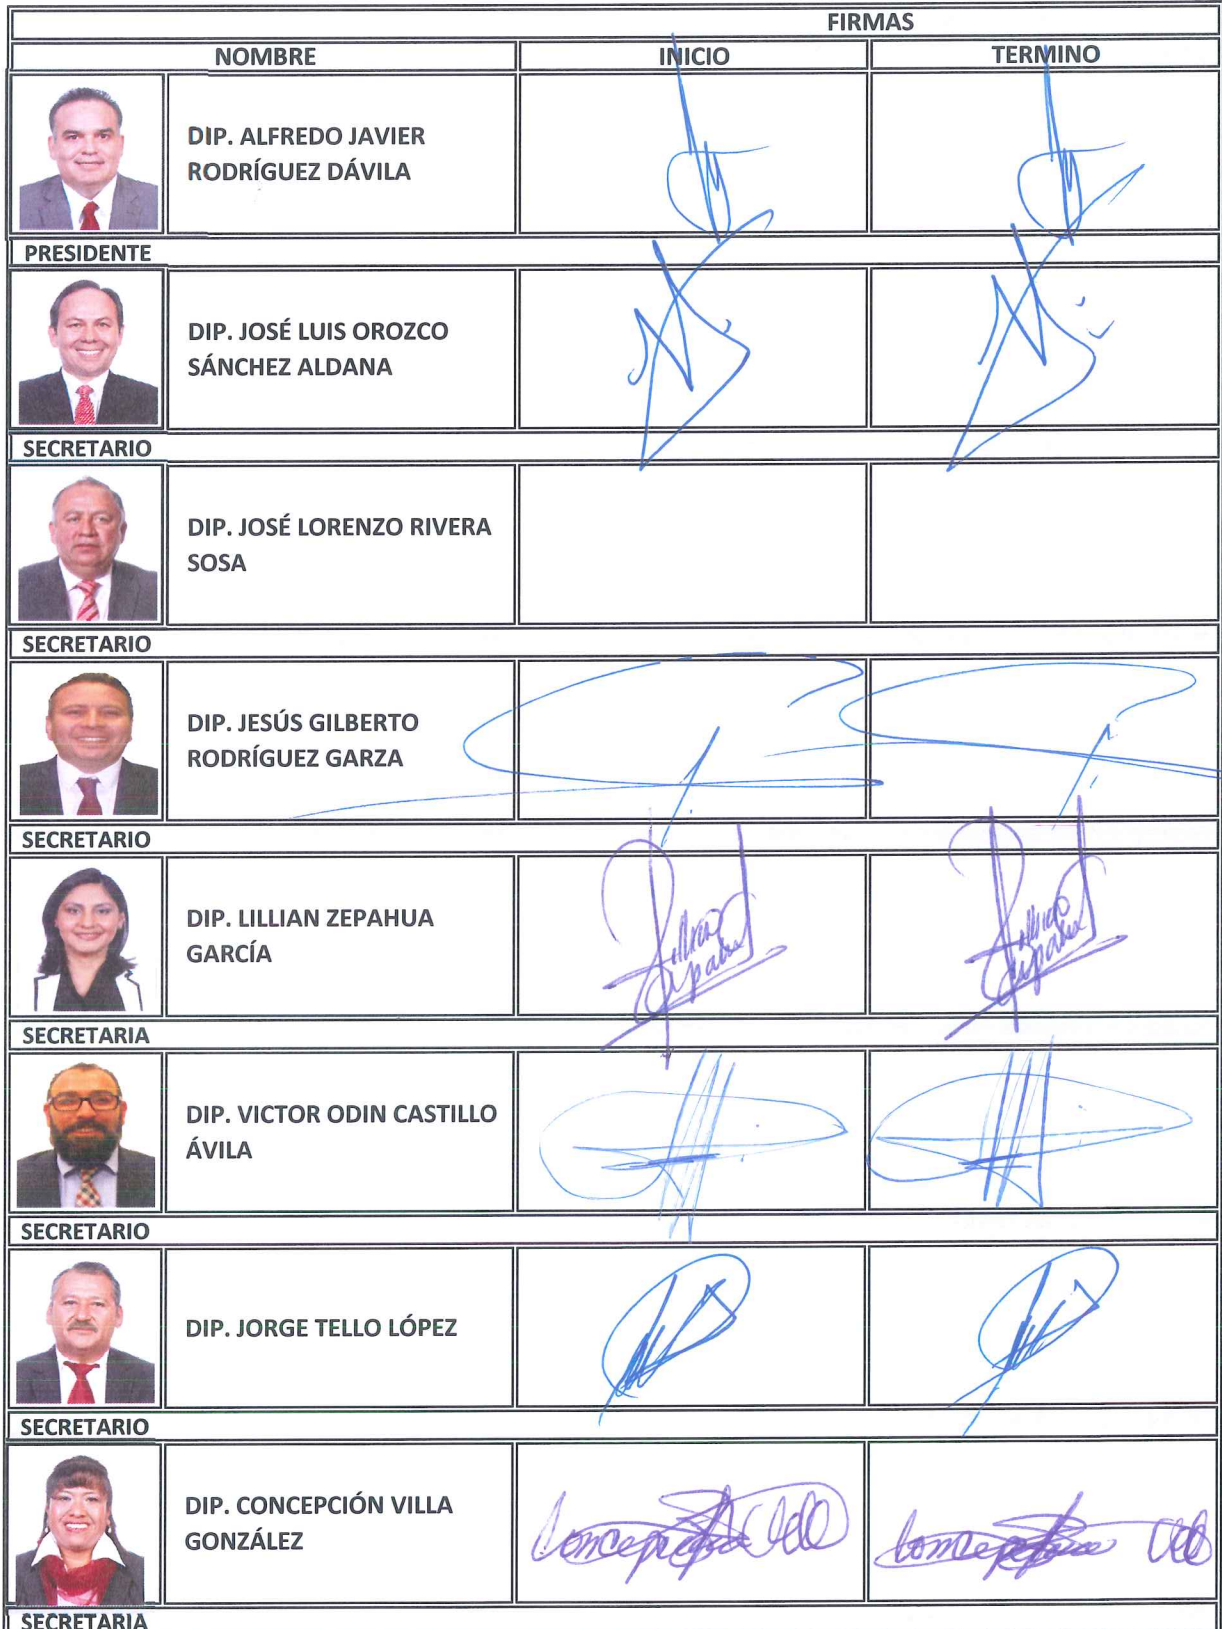 FIRMAS
NOMBRE INICIO TERMINO
DIP. ALFREDO JAVIER
RODRÍGUEZ DÁVILA
PRESIDENTE
DIP. JOSÉ LUIS OROZCO
SÁNCHEZ ALDANA
SECRETARIO
DIP. JOSÉ LORENZO RIVERA
SOSA
SECRETARIO
DIP. JESÚS GILBERTO
RODRÍGUEZ GARZA
SECRETARIO
DIP. LILLIAN ZEPAHUA
GARCÍA
SECRETARIA
DIP. VICTOR ODIN CASTILLO
ÁVILA
SECRETARIO
DIP. JORGE TELLO LÓPEZ
SECRETARIO
DIP. CONCEPCIÓN VILLA
GONZÁLEZ
SECRETARIA